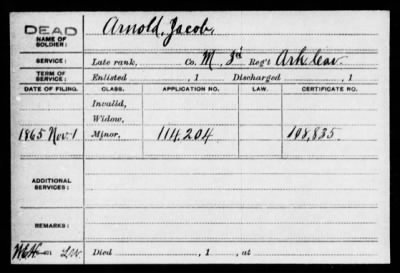 DEAD
NAME OF SOLDIER: Arnold, Jacob,
SERVICE: Late rank, Co. M, 3d Reg't Ark Cav.
TERM OF SERVICE: Enlisted , 1 Discharged , 1
DATE OF FILING. CLASS. APPLICATION NO. LAW. CERTIFICATE NO.
Invalid,
Widow,
1865 Nov. 1 Minor, 114,204 108,835.
ADDITIONAL SERVICES:
REMARKS:
Died , 1 , at